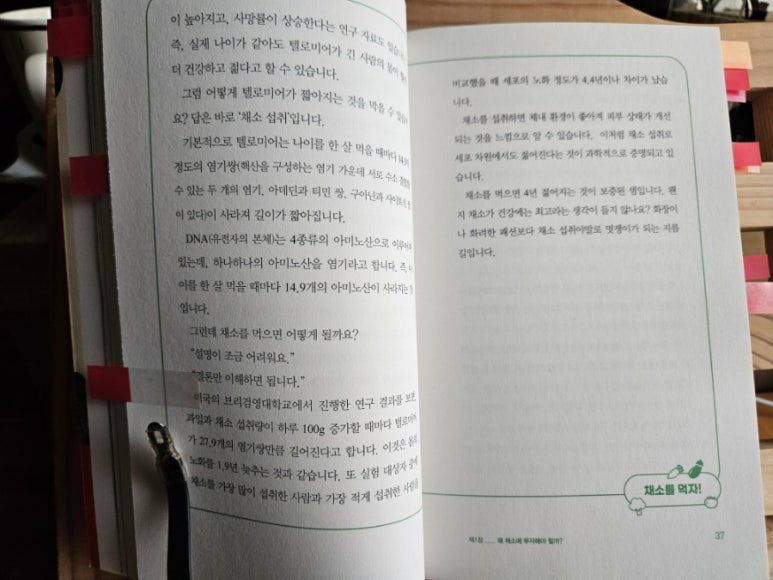 이 높아지고, 사망률이 상승한다는 연구 자료도 있습니다.
즉, 실제 나이가 같아도 텔로미어가 긴 사람의 몸이
더 건강하고 젊다고 할 수 있습니다.
그럼 어떻게 텔로미어가 짧아지는 것을 막을 수 있을까
요? 답은 바로 ‘채소 섭취’입니다.
기본적으로 텔로미어는 나이를 한 살 먹을 때마다
정도의 염기쌍(핵산을 구성하는 염기 가운데 서로 수소
수 있는 두 개의 염기. 아데닌과 티민 쌍, 구아닌과
이 있다)이 사라져 길이가 짧아집니다.
DNA(유전자의 본체)는 4종류의 아미노산으로
있는데, 하나하나의 아미노산을 염기라고 합니다. 즉,
이를 한 살 먹을 때마다 14.9개의 아미노산이 사라지는
입니다.
그런데 채소를 먹으면 어떻게 될까요?
“설명이 조금 어려워요.”
“결론만 이해하면 됩니다.”
미국의 브리검영대학교에서 진행한 연구 결과를 보면,
과일과 채소 섭취량이 하루 100g 증가할 때마다 텔로미어
가 27.9개의 염기쌍만큼 길어진다고 합니다. 이것은 몸의
노화를 1.9년 늦추는 것과 같습니다. 또 실험 대상자 중에
채소를 가장 많이 섭취한 사람과 가장 적게 섭취한 사람을
비교했을 때 세포의 노화 정도가 4.4년이나 차이가 났습
니다.
채소를 섭취하면 체내 환경이 좋아져 피부 상태가 개선
되는 것을 느낌으로 알 수 있습니다. 이처럼 채소 섭취로
세포 차원에서도 젊어진다는 것이 과학적으로 증명되고 있
습니다.
채소를 먹으면 4년 젊어지는 것이 보증된 셈입니다. 왠
지 채소가 건강에는 최고라는 생각이 들지 않나요? 화장이
나 화려한 패션보다 채소 섭취야말로 멋쟁이가 되는 지름
길입니다.
채소를 먹자!
제1장 ___ 왜 채소에 투자해야 할까? 37